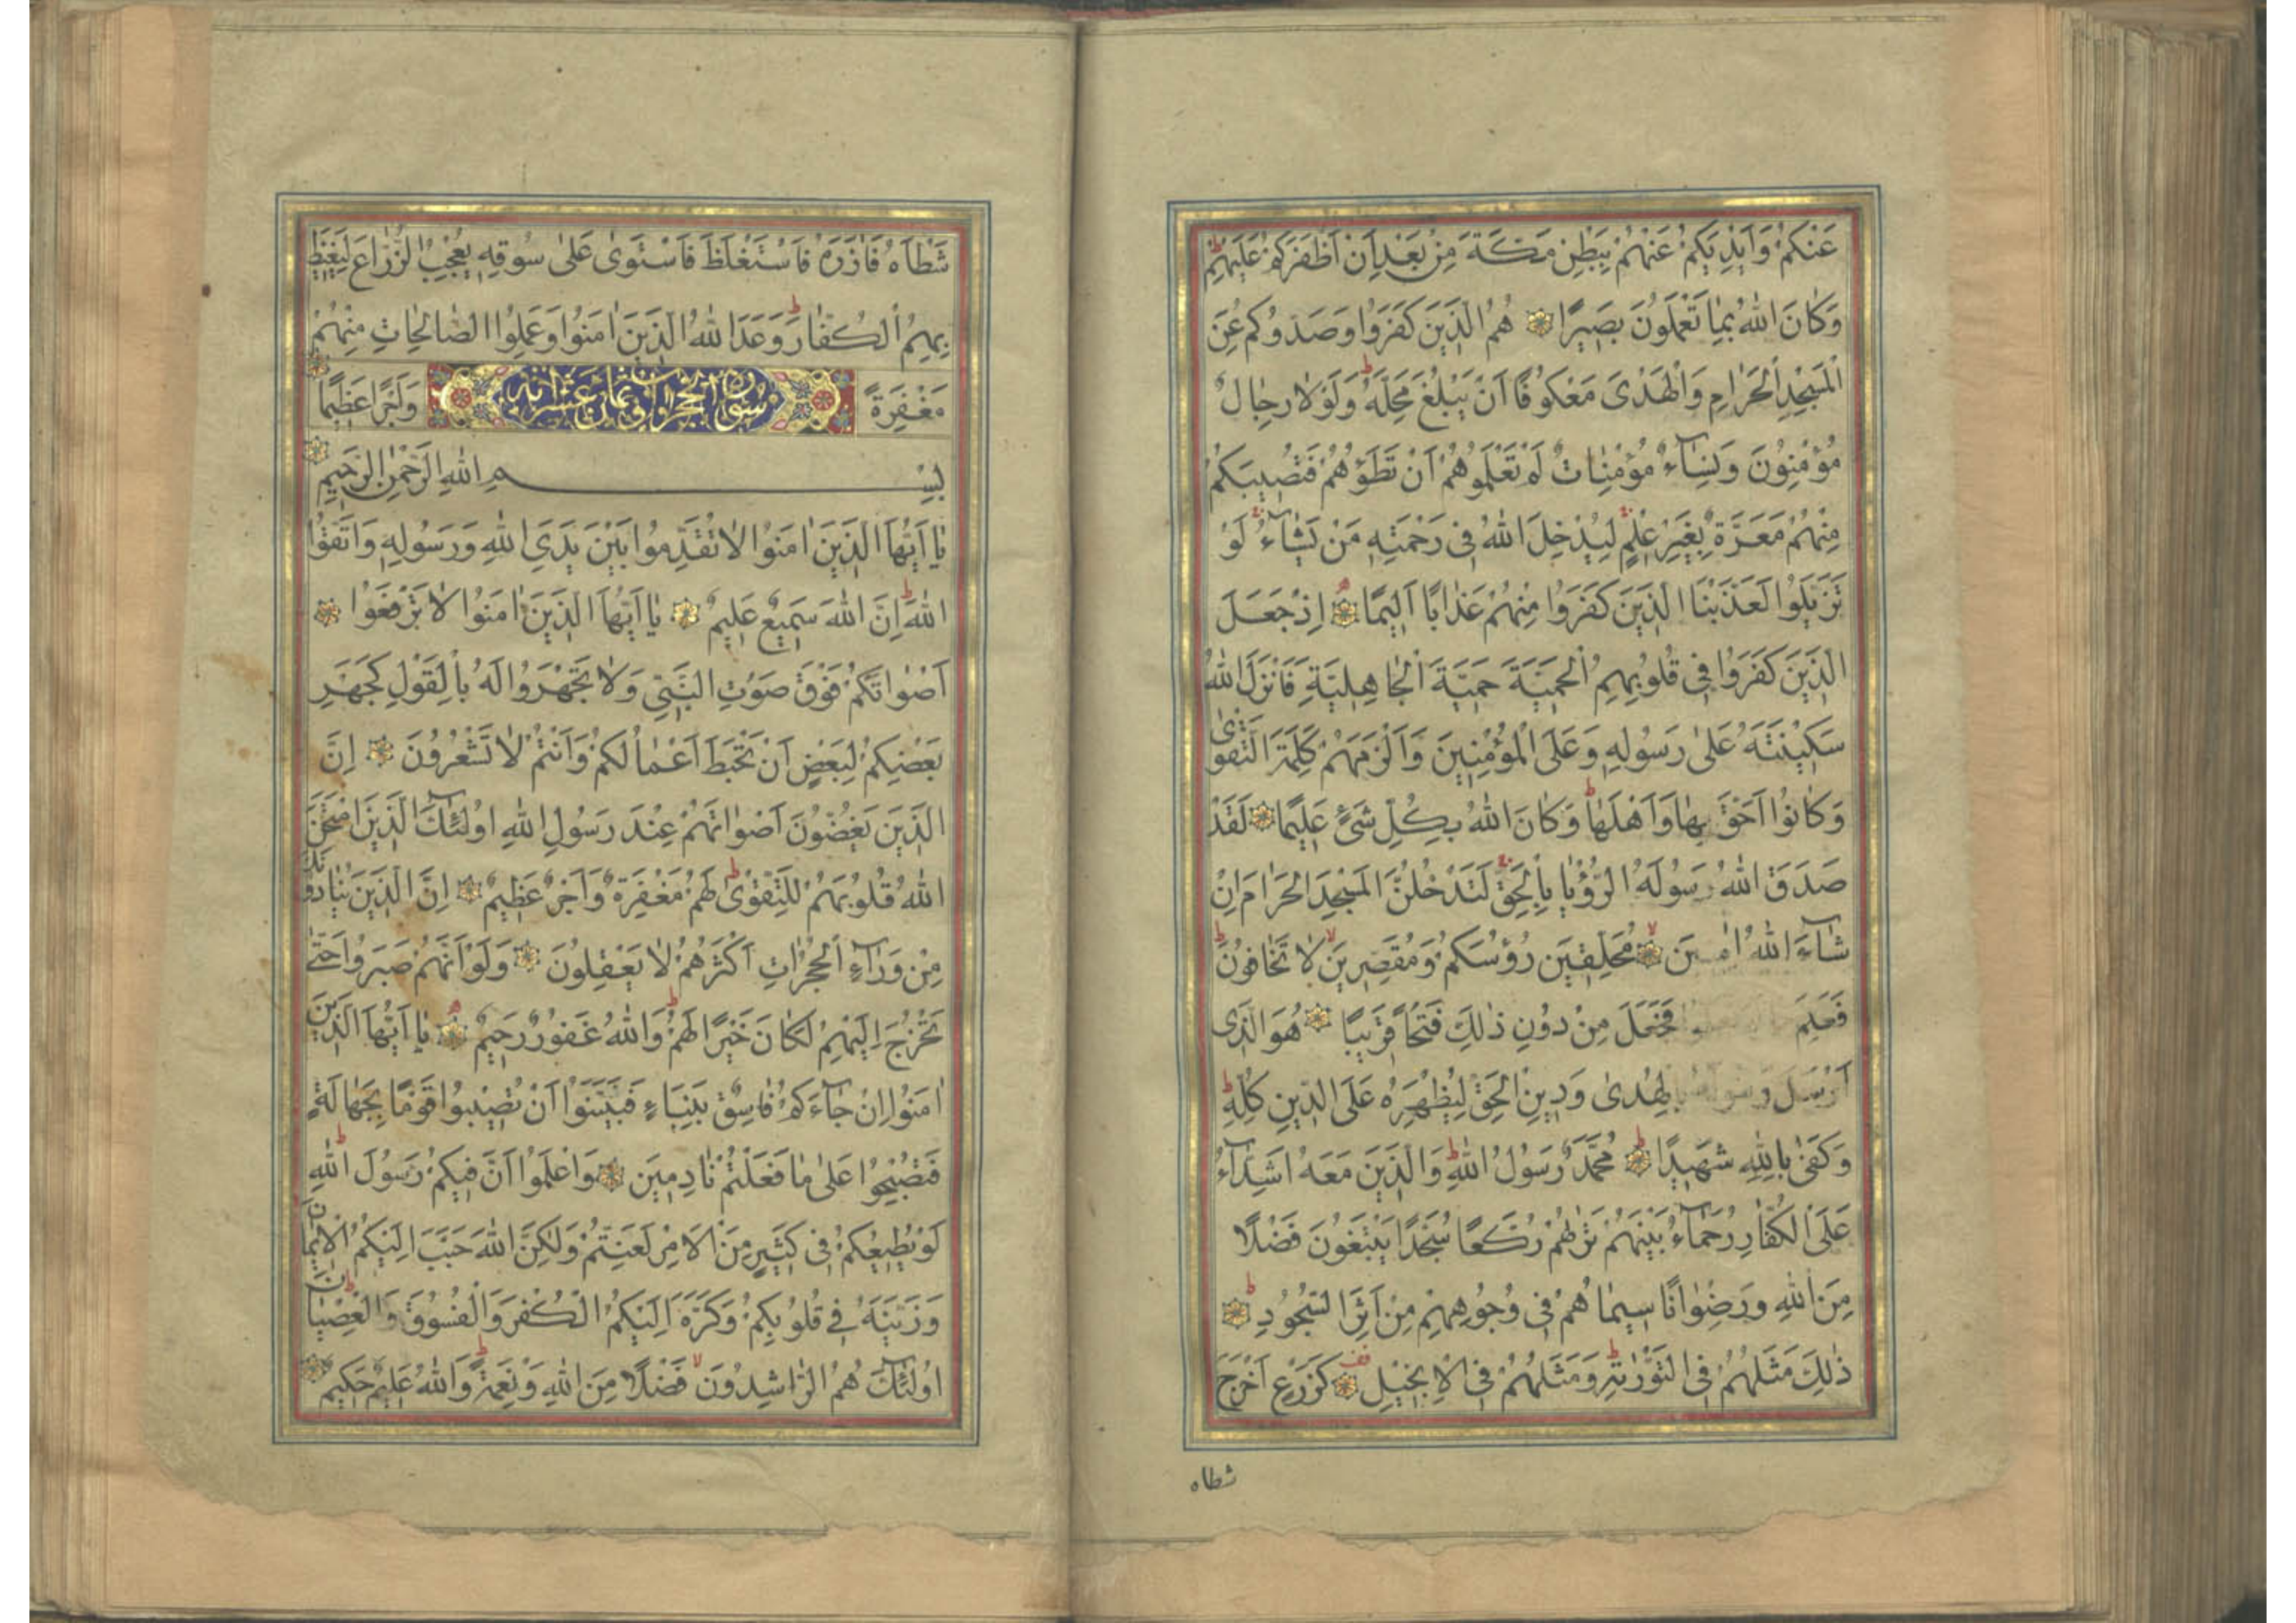 عَنْكُمْ وَاَيْدِيَكُمْ عَنْهُمْ بِبَطْنِ مَكَّةَ مِنْ بَعْدِ اَنْ اَظْفَرَكُمْ عَلَيْهِمْ
وَكَانَ اللهُ بِمَا تَعْمَلُونَ بَصِيرًا هُمُ الَّذِينَ كَفَرُوا وَصَدُّوكُمْ عَنِ
الْمَسْجِدِ الْحَرَامِ وَالْهَدْىَ مَعْكُوفًا اَنْ يَبْلُغَ مَحِلَّهُ وَلَوْلَا رِجَالٌ
مُؤْمِنُونَ وَنِسَآءٌ مُؤْمِنَاتٌ لَمْ تَعْلَمُوهُمْ اَنْ تَطَؤُهُمْ فَتُصِيبَكُمْ
مِنْهُمْ مَعَرَّةٌ بِغَيْرِ عِلْمٍ لِيُدْخِلَ اللهُ فِى رَحْمَتِهِ مَنْ يَشَآءُ لَوْ
تَزَيَّلُوا لَعَذَّبْنَا الَّذِينَ كَفَرُوا مِنْهُمْ عَذَابًا اَلِيمًا اِذْ جَعَلَ
الَّذِينَ كَفَرُوا فِى قُلُوبِهِمُ الْحَمِيَّةَ حَمِيَّةَ الْجَاهِلِيَّةِ فَاَنْزَلَ اللهُ
سَكِينَتَهُ عَلَى رَسُولِهِ وَعَلَى الْمُؤْمِنِينَ وَاَلْزَمَهُمْ كَلِمَةَ التَّقْوٰى
وَكَانُوا اَحَقَّ بِهَا وَاَهْلَهَا وَكَانَ اللهُ بِكُلِّ شَئٍ عَلِيمًا لَقَدْ
صَدَقَ اللهُ رَسُولَهُ الرُّؤْيَا بِالْحَقِّ لَتَدْخُلُنَّ الْمَسْجِدَ الْحَرَامَ اِنْ
شَآءَ اللهُ مُحَلِّقِينَ رُؤُسَكُمْ وَمُقَصِّرِينَ لَا تَخَافُونَ
فَعَلِمَ فَجَعَلَ مِنْ دُونِ ذٰلِكَ فَتْحًا قَرِيبًا هُوَ الَّذِى
اَرْسَلَ رَسُولَهُ بِالْهُدٰى وَدِينِ الْحَقِّ لِيُظْهِرَهُ عَلَى الدِّينِ كُلِّهِ
وَكَفٰى بِاللهِ شَهِيدًا مُحَمَّدٌ رَسُولُ اللهِ وَالَّذِينَ مَعَهُ اَشِدَّآءُ
عَلَى الْكُفَّارِ رُحَمَآءُ بَيْنَهُمْ تَرٰهُمْ رُكَّعًا سُجَّدًا يَبْتَغُونَ فَضْلًا
مِنَ اللهِ وَرِضْوَانًا سِيمَاهُمْ فِى وُجُوهِهِمْ مِنْ اَثَرِ السُّجُودِ
ذٰلِكَ مَثَلُهُمْ فِى التَّوْرٰيةِ وَمَثَلُهُمْ فِى الْاِنْجِيلِ كَزَرْعٍ اَخْرَجَ
شطاه
شَطْاَهُ فَاٰزَرَهُ فَاسْتَغْلَظَ فَاسْتَوٰى عَلَى سُوقِهِ يُعْجِبُ الزُّرَّاعَ لِيَغِيظَ
بِهِمُ الْكُفَّارَ وَعَدَ اللهُ الَّذِينَ اٰمَنُوا وَعَمِلُوا الصَّالِحَاتِ مِنْهُمْ
مَغْفِرَةً وَاَجْرًا عَظِيمًا
سورة الحجرات وهى ثمان عشر اية
بِسْمِ اللهِ الرَّحْمٰنِ الرَّحِيمِ
يَا اَيُّهَا الَّذِينَ اٰمَنُوا لَا تُقَدِّمُوا بَيْنَ يَدَىِ اللهِ وَرَسُولِهِ وَاتَّقُوا
اللهَ اِنَّ اللهَ سَمِيعٌ عَلِيمٌ يَا اَيُّهَا الَّذِينَ اٰمَنُوا لَا تَرْفَعُوا
اَصْوَاتَكُمْ فَوْقَ صَوْتِ النَّبِىِّ وَلَا تَجْهَرُوا لَهُ بِالْقَوْلِ كَجَهْرِ
بَعْضِكُمْ لِبَعْضٍ اَنْ تَحْبَطَ اَعْمَالُكُمْ وَاَنْتُمْ لَا تَشْعُرُونَ اِنَّ
الَّذِينَ يَغُضُّونَ اَصْوَاتَهُمْ عِنْدَ رَسُولِ اللهِ اُولٰئِكَ الَّذِينَ امْتَحَنَ
اللهُ قُلُوبَهُمْ لِلتَّقْوٰى لَهُمْ مَغْفِرَةٌ وَاَجْرٌ عَظِيمٌ اِنَّ الَّذِينَ يُنَادُونَكَ
مِنْ وَرَآءِ الْحُجُرَاتِ اَكْثَرُهُمْ لَا يَعْقِلُونَ وَلَوْ اَنَّهُمْ صَبَرُوا حَتّٰى
تَخْرُجَ اِلَيْهِمْ لَكَانَ خَيْرًا لَهُمْ وَاللهُ غَفُورٌ رَحِيمٌ يَا اَيُّهَا الَّذِينَ
اٰمَنُوا اِنْ جَآءَكُمْ فَاسِقٌ بِنَبَاءٍ فَتَبَيَّنُوا اَنْ تُصِيبُوا قَوْمًا بِجَهَالَةٍ
فَتُصْبِحُوا عَلَى مَا فَعَلْتُمْ نَادِمِينَ وَاعْلَمُوا اَنَّ فِيكُمْ رَسُولَ اللهِ
لَوْ يُطِيعُكُمْ فِى كَثِيرٍ مِنَ الْاَمْرِ لَعَنِتُّمْ وَلٰكِنَّ اللهَ حَبَّبَ اِلَيْكُمُ الْاِيمَانَ
وَزَيَّنَهُ فِى قُلُوبِكُمْ وَكَرَّهَ اِلَيْكُمُ الْكُفْرَ وَالْفُسُوقَ وَالْعِصْيَانَ
اُولٰئِكَ هُمُ الرَّاشِدُونَ فَضْلًا مِنَ اللهِ وَنِعْمَةً وَاللهُ عَلِيمٌ حَكِيمٌ